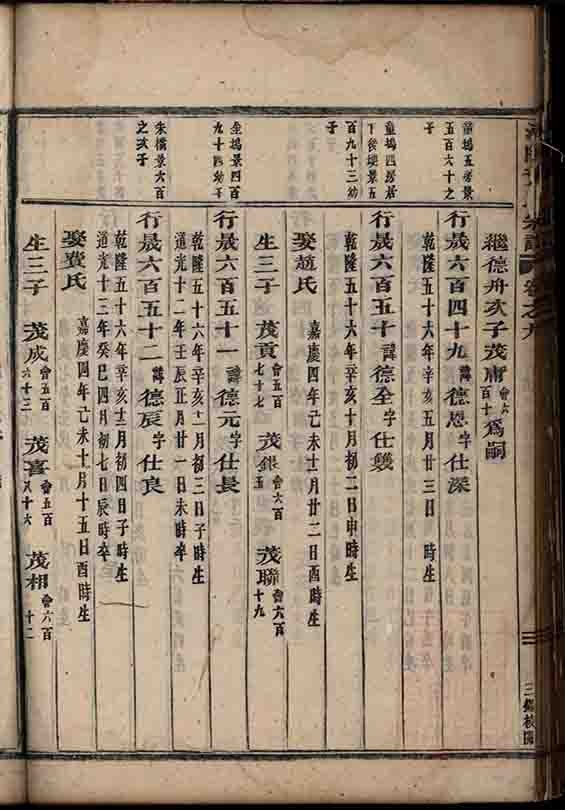 卷之九
繼德舟次子茂庸會六百十爲嗣
童塢五房景
五百六十之
子
行晟六百四十九諱德恩字仕深
乾隆五十六年辛亥五月廿三日 時生
童塢四房居
下後塘景五
百九十三幼
子
行晟六百五十諱德全字仕
乾隆五十六年辛亥十月初二日申時生
娶趙氏 嘉慶四年己未十二月廿二日酉時生
生三子 茂貢會五百七十七 茂銀會六百五 茂聯會六百十九
景四百
九十四幼子
行晟六百五十一諱德元字仕長
乾隆五十六年辛亥十二月初三日子時生
道光十二年壬辰正月廿一日未時卒
朱橋景六百
之次子
行晟六百五十二諱德辰字仕良
乾隆五十六年辛亥十二月初四日子時生
道光十三年癸巳四月初七日辰時卒
娶費氏 嘉慶四年己未十月十五日酉時生
生三子 茂成會五百六十三 茂喜會五百八十六 茂相會六百十二